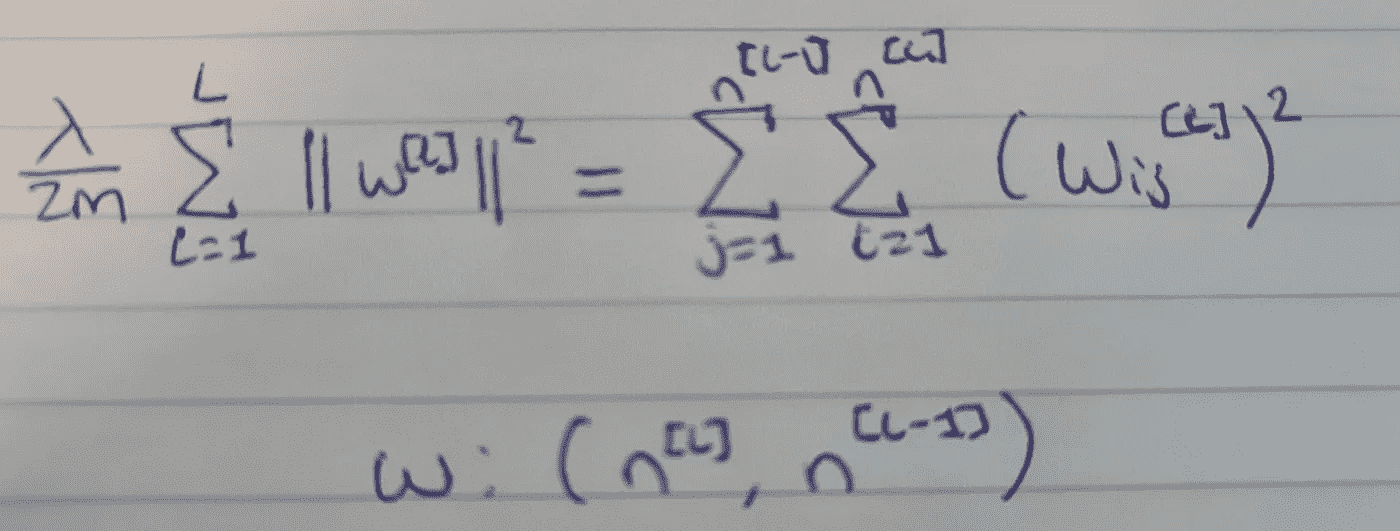 λ/2m Σ_{l=1}^{L} ||w^{[l]}||² = Σ_{j=1}^{n^{[l-1]}} Σ_{i=1}^{n^{[l]}} (w_{ij}^{[l]})²
w: (n^{[l]}, n^{[l-1]})